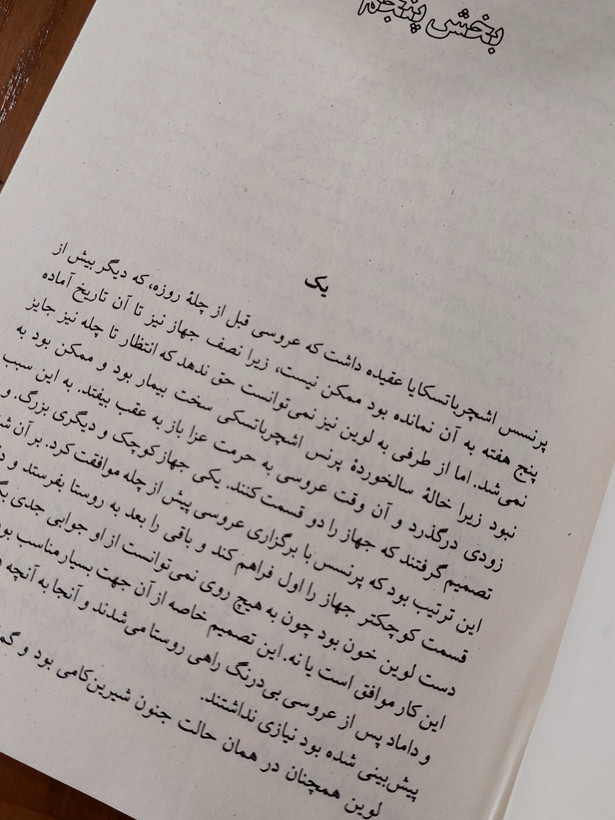 بخش پنجم
یک
پرنسس اشچرباتسکایا عقیده داشت که عروسی قبل از چلهٔ روزه، که دیگر بیش از
پنج هفته به آن نمانده بود ممکن نیست، زیرا نصف جهاز نیز تا آن تاریخ آماده
نمی‌شد. اما از طرفی به لوین نیز نمی‌توانست حق ندهد که انتظار تا چله نیز جایز
نبود زیرا خالهٔ سالخوردهٔ پرنس اشچرباتسکی سخت بیمار بود و ممکن بود به
زودی درگذرد و آن وقت عروسی به حرمت عزا باز به عقب بیفتد. به این سبب
تصمیم گرفتند که جهاز را دو قسمت کنند. یکی جهاز کوچک و دیگری بزرگ. و
این ترتیب بود که پرنسس با برگزاری عروسی پیش از چله موافقت کرد. بر آن
قسمت کوچکتر جهاز را اول فراهم کند و باقی را بعد به روستا بفرستد و
دست لوین خون بود چون به هیچ روی نمی‌توانست از او جوابی جدی
این کار موافق است یا نه. این تصمیم خاصه از آن جهت بسیار مناسب بود
و داماد پس از عروسی بی‌درنگ راهی روستا می‌شدند و آنجا به آنچه
پیش‌بینی شده بود نیازی نداشتند.
لوین همچنان در همان حالت جنون شیرین‌کامی بود و